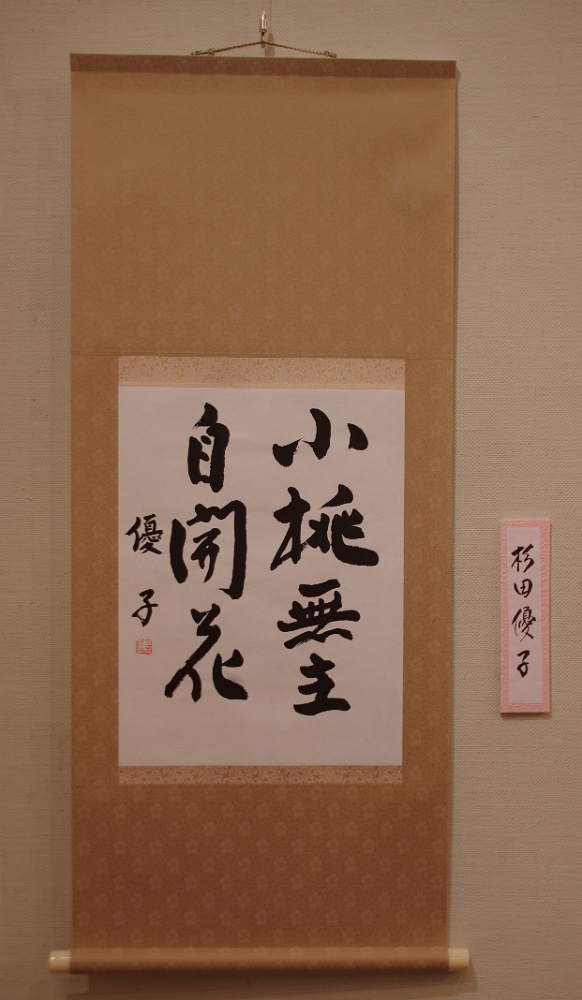 小桃無主
自開花
優子
杉田優子